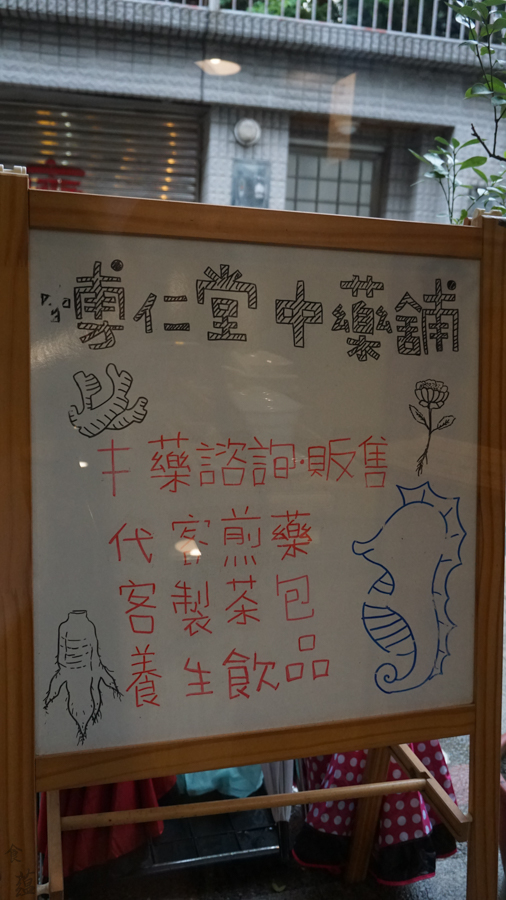 仁堂中藥舖
中藥諮詢·販售
代客煎藥
客製茶包
養生飲品